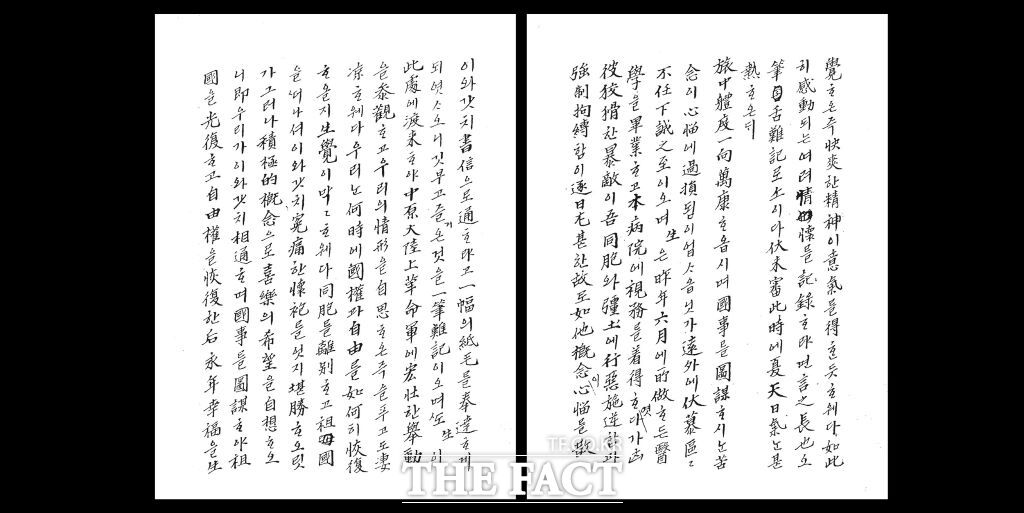 覺ᄒᆞ온즉快爽한精神이意氣를得ᄒᆞᆫ듯ᄒᆞ웨다如此
히感動되는여러情懷를記錄ᄒᆞ라면言之長也오
筆舌難記로소이다伏未審此時에夏天日氣난甚
熱ᄒᆞ온ᄃᆡ
旅中體度一向萬康ᄒᆞ옵시며國事를圖謀ᄒᆞ시난苦
念이心惱에過損됨이업ᄉᆞ옵닛가遠外에伏慕區〻
不任下誠之至이오며生은昨年六月에所做ᄒᆞ든醫
學을畢業ᄒᆞ고本病院에視務를着得ᄒᆞ엿다가
彼狡猾한暴敵이吾同胞와疆土에行惡施逆한과
強制拘縛함이逐日尤甚한故로如他槪念이心惱를散
이와갓치書信으로通ᄒᆞ랴고一幅의紙毛를奉達ᄒᆞ게
되엿ᄉᆞ오니깃부고즐기온것을一筆難記이오며또生이
此處에渡来ᄒᆞ야中原大陸上革命軍에宏壯한擧動
을參觀ᄒᆞ고우리의情形을自思ᄒᆞ온즉슬푸고도凄
凉ᄒᆞ웨다우리난何時에國權과自由를如何히恢復
ᄒᆞ올지生覺이막〻ᄒᆞ웨다同胞를離別ᄒᆞ고祖母國
을떠나셔이와갓치寃痛한懷袍를엇지堪勝ᄒᆞ오릿
가그러나積極的槪念으로喜樂의希望을自想ᄒᆞ오
니即우리가이와갓치相通ᄒᆞ며國事를圖謀ᄒᆞ야祖
國을光復ᄒᆞ고自由權을恢復한后永年幸福을生
TF.CO.KR
THE FACT